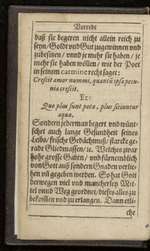 Vorrede
daß sie begeren nicht allein reich zu
seyn / Goldt und Gut zugewinnen und
zubesitzen / unnd je mehr sie haben / je
mehr sie haben wöllen / wie der Poet
in seinem carmine recht saget:
Crescit amor nummi, quantum ipsa pecu-
nia crescit.
Et:
Quo plus sunt potæ, plus sitiuntur
aquæ.
Sondern jederman begert und wün-
schet auch lange Gesundheit seines
Leibs / frische Gedächtnuß / starcke ge-
rade Gliedmassen / ꝛc. Welches zwar
hohe grosse Gaben / und fürnemblich
von Gott auß sondern Gnaden wöllen
gegeben werden. So hat Gott
derwegen viel und mancherley Mit-
tel unnd Weg geordnet / diese alles zu
bekommen und zu erlangen. Dann etli-
che